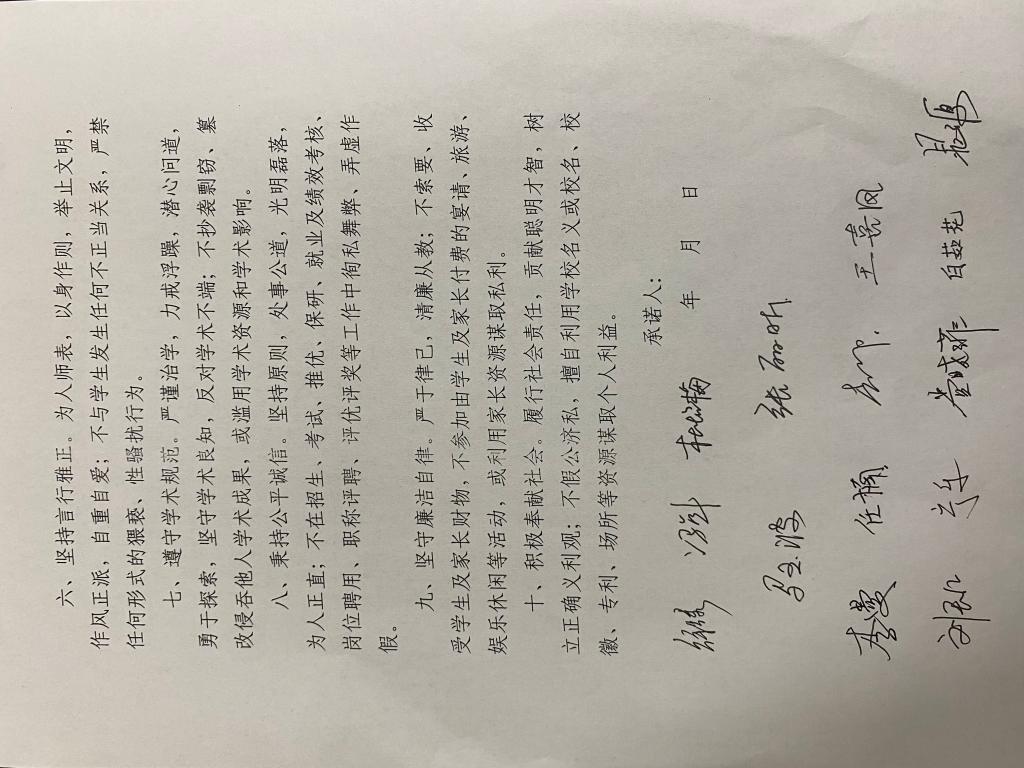 六、坚持言行雅正。为人师表，以身作则，举止文明，
作风正派，自重自爱；不与学生发生任何不正当关系，严禁
任何形式的猥亵、性骚扰行为。
七、遵守学术规范。严谨治学，力戒浮躁，潜心问道，
勇于探索，坚守学术良知，反对学术不端；不抄袭剽窃、篡
改侵吞他人学术成果，或滥用学术资源和学术影响。
八、秉持公平诚信。坚持原则，处事公道，光明磊落，
为人正直；不在招生、考试、推优、保研、就业及绩效考核、
岗位聘用、职称评聘、评优评奖等工作中徇私舞弊、弄虚作
假。
九、坚守廉洁自律。严于律己，清廉从教；不索要、收
受学生及家长财物，不参加由学生及家长付费的宴请、旅游、
娱乐休闲等活动，或利用家长资源谋取私利。
十、积极奉献社会。履行社会责任，贡献聪明才智，树
立正确义利观；不假公济私，擅自利用学校名义或校名、校
徽、专利、场所等资源谋取个人利益。
承诺人：
年 月 日
张丽昕
李曼 任楠 王喜凤
白茹花